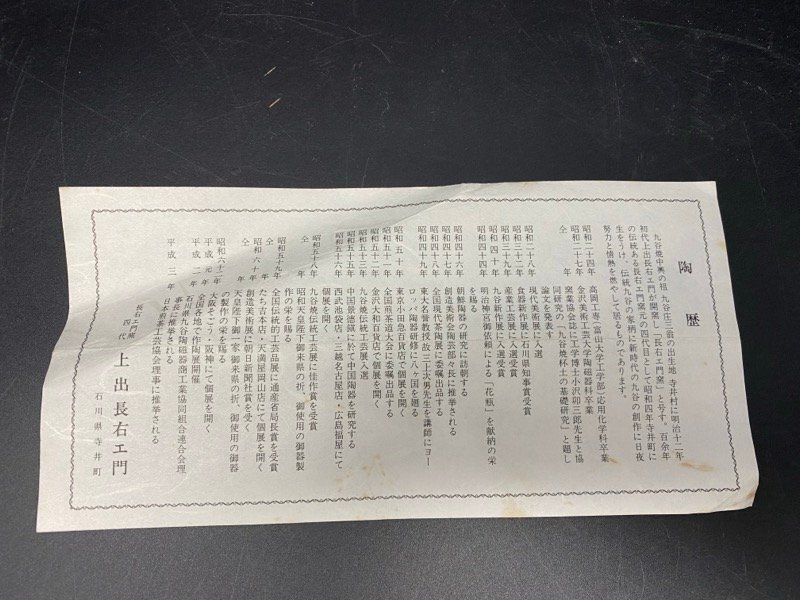 陶歴
九谷焼中興の祖 九谷庄三翁の出生地 寺井村に明治十二年
初代上出長右エ門が開窯し「長右エ門窯」と号す。百余年
の伝統ある長右エ門窯元の四代目として昭和四年寺井町に
生をうけ、伝統九谷の美柄に新時代の九谷の創作に日夜
努力と情熱を燃やして居るものであります。
昭和二十四年 高岡工専(富山大学工学部)応用化学科卒業
昭和二十七年 金沢美術工芸大学陶磁器科卒業
仝 年 窯業協会誌に工学博士小沢卯三郎先生と協
同研究の「九谷焼杯土の基礎研究」と題し
論文を発表す
昭和二十八年 現代美術展に入選
昭和三十二年 食器新作展に石川県知事賞受賞
昭和三十九年 産業工芸展に入選受賞
昭和四十年 九谷新作展に入選受賞
昭和四十四年 明治神宮御依頼による「花瓶」を献納の栄
を賜る
昭和四十六年 朝鮮陶器の研究に訪朝する
昭和四十七年 創造美術会陶芸部々長に推挙される
昭和四十八年 全国現代茶陶展に委嘱出品する
昭和四十九年 東大名誉教授故三上次男先生を講師にヨー
ロッパ陶器研修に八ヶ国を廻る
昭和五十年 東京小田急百貨店で個展を開く
昭和五十一年 全国煎茶道大会に委嘱出品する
昭和五十二年 金沢大和百貨店で個展を開く
昭和五十三年 九谷焼伝統工芸展入選
昭和五十五年 中国景徳鎮に於て中国陶磁を研究する
昭和五十六年 西武池袋店・三越名古屋店・広島福屋にて
個展を開く
昭和五十八年 九谷焼伝統工芸展に佳作賞を受賞
仝 年 昭和天皇陛下御来県の折、御使用の御器製
作の栄を賜る
昭和五十九年 全国伝統的工芸品展に通産省局長賞を受賞
仝 年 たち吉本店・天満屋岡山店にて個展を開く
昭和六十年 創造美術展に朝日新聞社賞を受く
仝 年 天皇陛下御一家御来県の折、御使用の御器
の製作の栄を賜る
昭和六十二年 大阪そごう・大阪阪神にて個展を開く
平成元年 全国各地で作陶展開催
平成二年 石川県九谷陶磁器商工業協同組合連合会理
事長に推挙される
平成三年 日本煎茶工芸協会理事に推挙される
長右エ門窯
四代 上出長右エ門
石川県寺井町